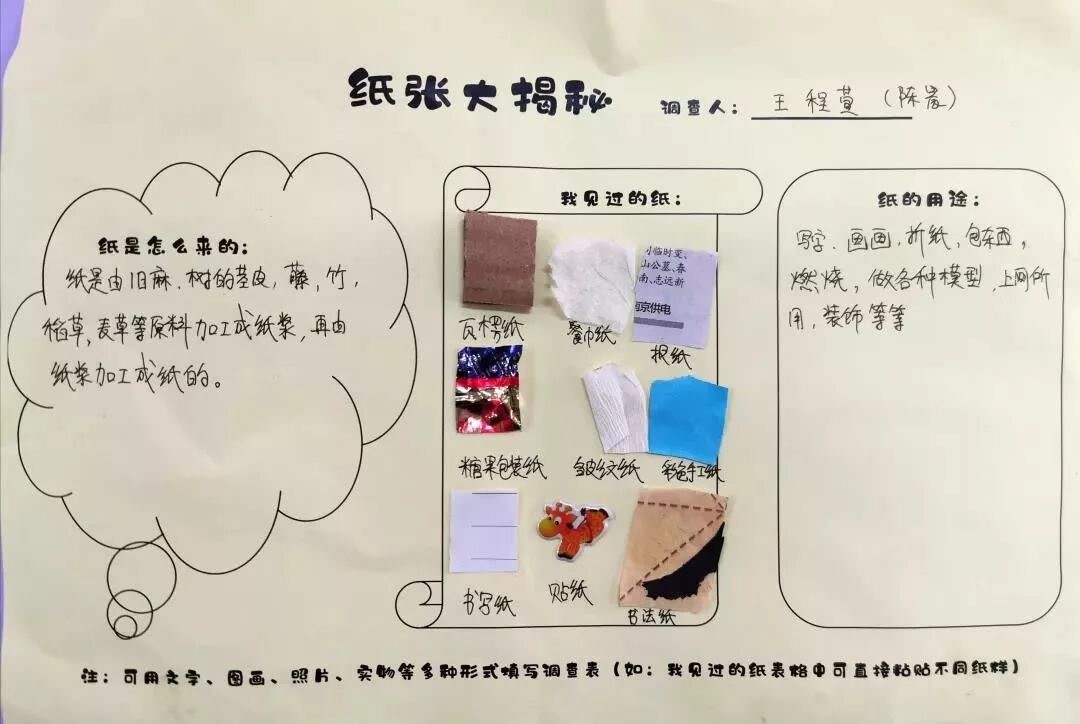 纸张大揭秘
调查人：王程萱（陈嵩）
纸是怎么来的：
纸是由旧麻、树的茎皮，藤，竹，
稻草，麦草等原料加工成纸浆，再由
纸浆加工成纸的。
我见过的纸：
临时变、
山公墓、春
南、志远新
南京供电
瓦楞纸
餐巾纸
报纸
糖果包装纸
皱纹纸
彩色手工纸
书写纸
贴纸
书法纸
纸的用途：
写字、画画，折纸，包东西，
燃烧，做各种模型，上厕所
用，装饰等等
注：可用文字、图画、照片、实物等多种形式填写调查表（如：我见过的纸表格中可直接粘贴不同纸样）